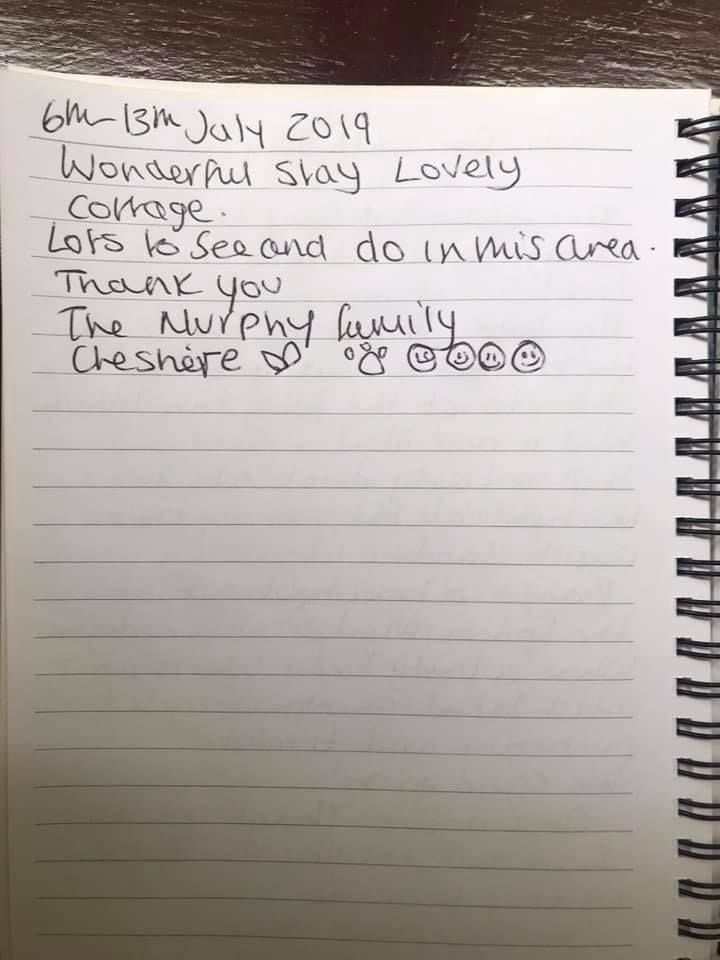 6th-13th July 2019
Wonderful stay Lovely
Cottage.
Lots to see and do in this area.
Thank you
The Murphy family
Cheshire